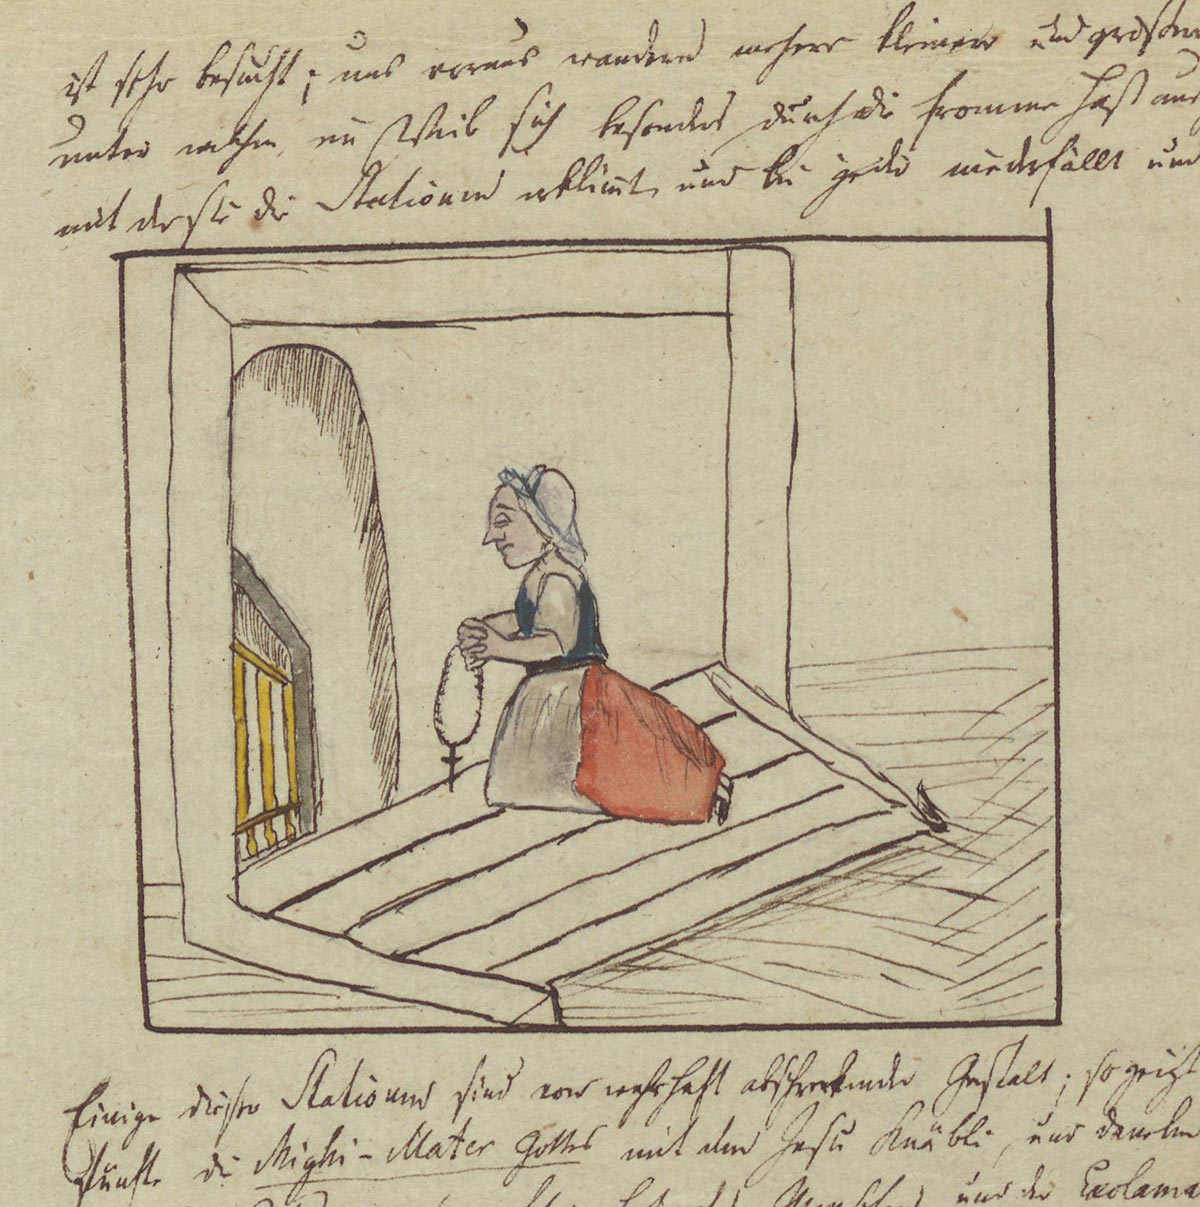 ist sehr besucht; uns voraus wandern mehere kleinere und grössere
unter welchen ein Weib sich besonders durch die fromme Hast aus
mit der sie die Stationen erklimt, und bei jeder niederfällt und
Einige dieser Stationen sind von wahrhaft abschreckender Gestalt; so zeigt
fünfte die Righi-Mater Gottes mit dem Jesu Knäbli, und daneben
und die Exclama